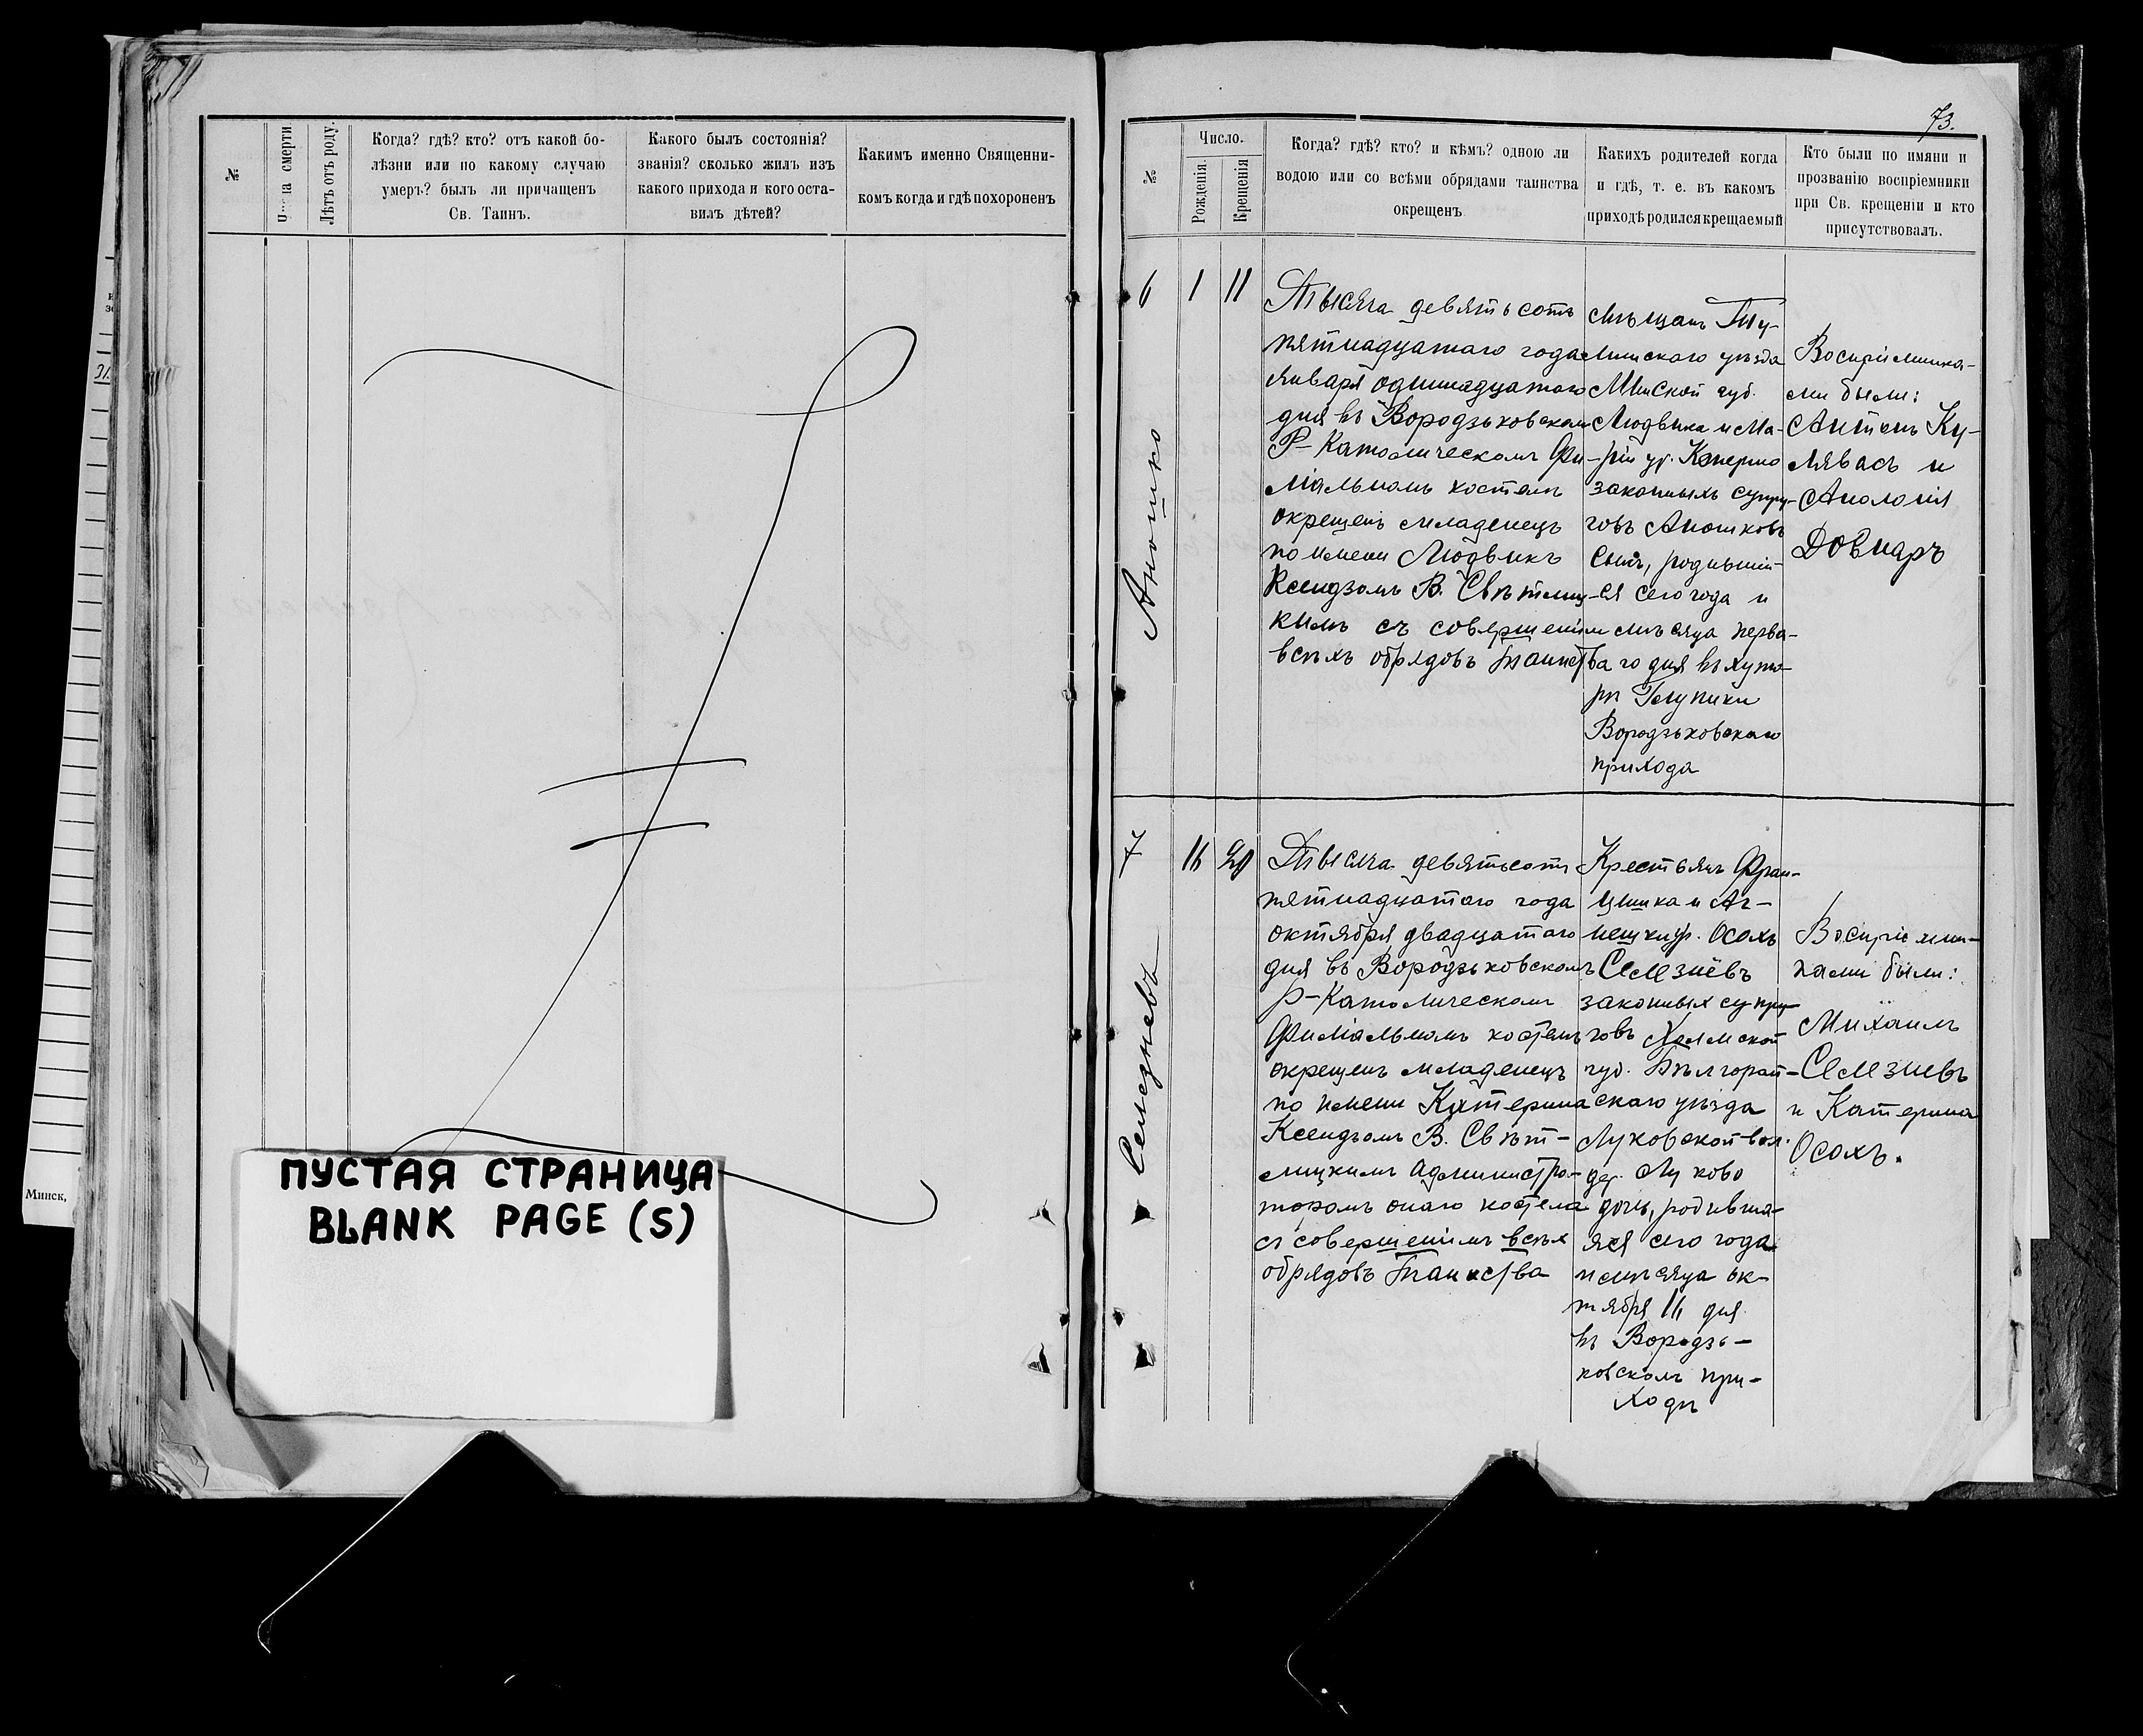 №
смерти
Лѣтъ отъ роду.
Когда? гдѣ? кто? отъ какой бо-
лѣзни или по какому случаю
умеръ? былъ ли причащенъ
Св. Таинъ.
Какого былъ состоянія?
званія? сколько жилъ изъ
какого прихода и кого оста-
вилъ дѣтей?
Какимъ именно Священни-
комъ когда и гдѣ похороненъ
Минск,
ПУСТАЯ СТРАНИЦА
BLANK PAGE (S)
73.
№
Число.
Рожденія
Крещенія
Когда? гдѣ? кто? и кѣмъ? одною ли
водою или со всѣми обрядами таинства
окрещенъ
Какихъ родителей когда
и гдѣ, т. е. въ какомъ
приходѣ родился крещаемый
Кто были по имяни и
прозванію воспріемники
при Св. крещеніи и кто
присутствовалъ.
6
Аношко
1
11
Тысяча девятьсотъ
пятнадцатаго года
января одинадцатаго
дня въ Вородзьковском
Р-Католическомъ Фи-
ліальномъ костелѣ
окрещенъ младенецъ
по имени Людвикъ
Ксендзомъ В. Свѣтлиц-
кимъ съ совершеніем
всѣхъ обрядовъ Таинства
Мѣщанъ
Минскаго уѣзда
Минской губ.
Людвика и Ма-
ріи ур.
законныхъ супру-
говъ Аношковъ
сынъ, родившій-
ся сего года и
мѣсяца перва-
го дня въ хуто-
рѣ
Вородзьковскаго
прихода
Воспріемника-
ми были:
Антонъ Ку-
лявасъ и
Аполонія
Довнаръ
7
Селезневъ
16
20
Тысяча девятьсотъ
пятнадцатаго года
октября двадцатаго
дня въ Вородзьковскомъ
Р-Католическомъ
Филіальномъ костелѣ
окрещенъ младенецъ
по имени Катерина
Ксендзомъ В. Свѣт-
лицкимъ Администра-
торомъ онаго костела
съ совершеніемъ всѣх
обрядовъ Таинства
Крестьянъ Фран-
цишка и Аг-
нешки ур. Осохъ
Селезнёвъ
законных супру-
говъ Холмской
губ. Бѣлгорай-
скаго уѣзда
Луковской вол.
дер. Луково
дочь, родивша-
яся сего года
и мѣсяца ок-
тября 16 дня
въ Вородзь-
ковскомъ при-
ходѣ
Воспріемни-
ками были:
Михаилъ
Селезневъ
и Катерина
Осохъ.